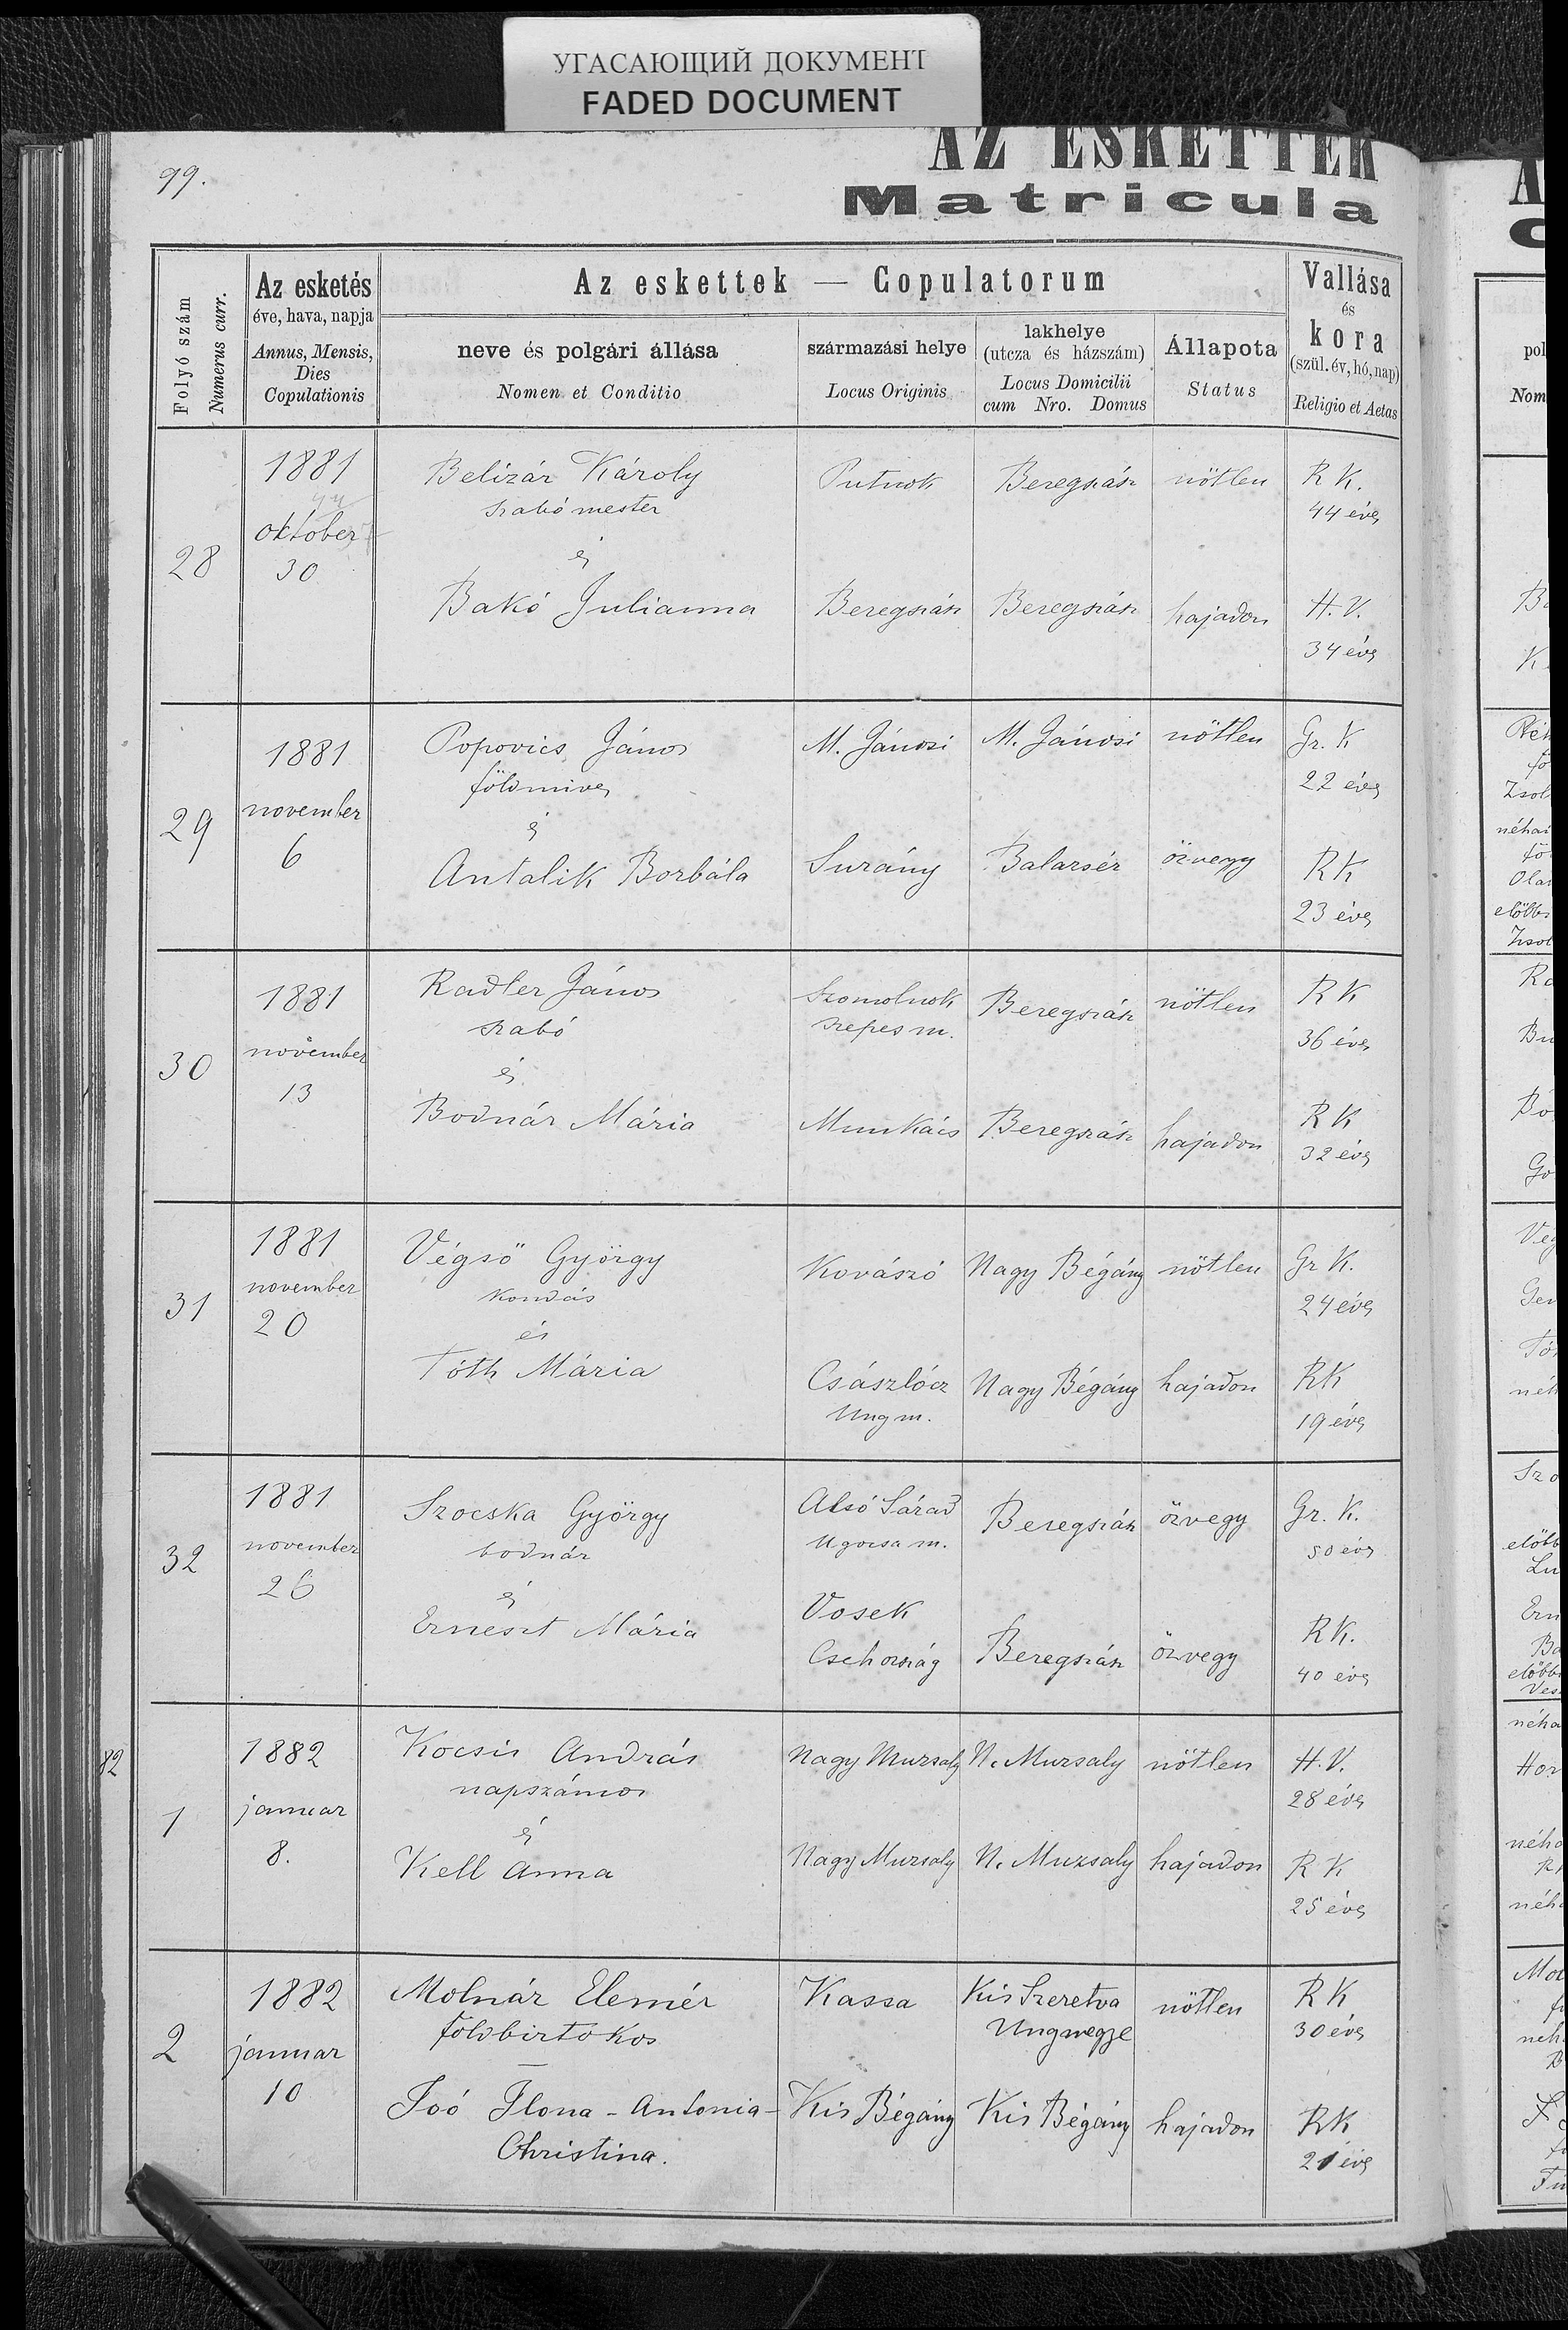 УГАСАЮЩИЙ ДОКУМЕНТ
FADED DOCUMENT
99.
AZ ESKETTEK
Matricula
Folyó szám
Numerus curr.
Az esketés
éve, hava, napja
Annus, Mensis,
Dies
Copulationis
Az eskettek — Copulatorum
neve és polgári állása
Nomen et Conditio
származási helye
Locus Originis
lakhelye
(utcza és házszám)
Locus Domicilii
cum Nro. Domus
Állapota
Status
Vallása
és
kora
(szül. év, hó, nap)
Religio et Aetas
28
1881
október
30
Belizár Károly
szabó mester
és
Bakó Julianna
Putnok
Beregszász
nötlen
R K.
44 éves
Beregszász
Beregszász
hajadon
H. V.
34 éves
29
1881
november
6
Popovics János
földmives
és
Antalik Borbála
M. Jánosi
M. Jánosi
nötlen
Gr. K
22 éves
Surány
Balazsér
özvegy
R K
23 éves
30
1881
november
13
Radler János
szabó
és
Bodnár Mária
Szomolnok
szepes m.
Beregszász
nötlen
R K
36 éves
Munkács
Beregszász
hajadon
R K
32 éves
31
1881
november
20
Végsö György
kondás
és
Tóth Mária
Kovászó
Nagy Bégány
nötlen
Gr K.
24 éves
Császlócz
Ung m.
Nagy Bégány
hajadon
RK
19 éves
32
1881
november
26
Szocska György
bodnár
és
Erneszt Mária
Alsó Sárad
Ugocsa m.
Beregszász
özvegy
Gr. K.
50 éves
Vosek
Csehország
Beregszász
özvegy
RK.
40 éves
82
1
1882
januar
8.
Kocsis András
napszámos
és
Kell Anna
Nagy Muzsaly
N. Muzsaly
nötlen
H. V.
28 éves
Nagy Muzsaly
N. Muzsaly
hajadon
R K
25 éves
2
1882
januar
10
Molnár Elemér
földbirtokos
—
Joó Ilona - Antonia -
Christina.
Kassa
Kis Szeretva
Ungmegye
nötlen
R K
30 éves
Kis Bégány
Kis Bégány
hajadon
RK
21 éves